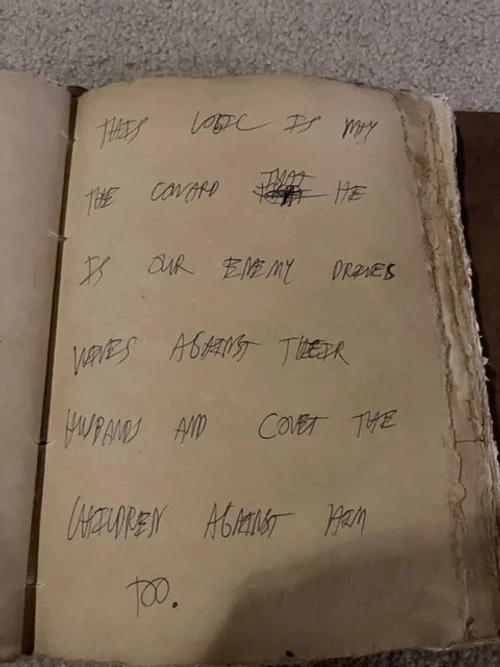 THIS LOGIC IS WHY
THE COWARD THAT HE
IS OUR ENEMY DRIVES
WIVES AGAINST THEIR
HUSBANDS AND COVET THE
CHILDREN AGAINST HIM
TOO.